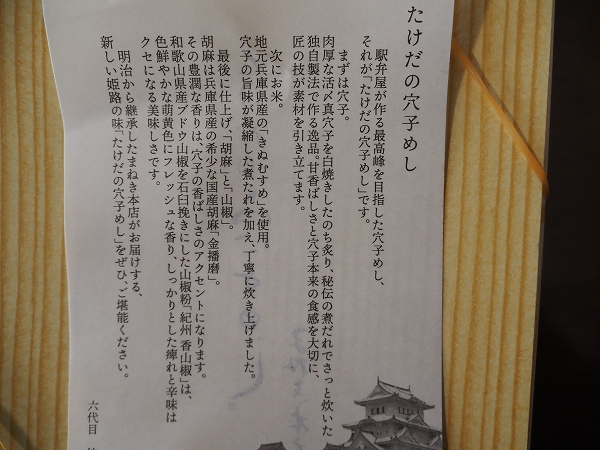 たけだの穴子めし
駅弁屋が作る最高峰を目指した穴子めし、
それが「たけだの穴子めし」です。
まずは穴子。
肉厚な活〆真穴子を白焼きしたのち炙り、秘伝の煮だれでさっと炊いた
独自製法で作る逸品。甘香ばしさと穴子本来の食感を大切に、
匠の技が素材を引き立てます。
次にお米。
地元兵庫県産の「きぬむすめ」を使用。
穴子の旨味が凝縮した煮たれを加え、丁寧に炊き上げました。
最後に仕上げ、「胡麻」と「山椒」。
胡麻は兵庫県産の希少な国産胡麻「金播磨」。
その豊潤な香りは、穴子の香ばしさのアクセントになります。
和歌山県産ブドウ山椒を石臼挽きにした山椒粉「紀州 香山椒」は、
色鮮やかな萌黄色にフレッシュな香り、しっかりとした痺れと辛味は
クセになる美味しさです。
明治から継承したまねき本店がお届けする、
新しい姫路の味「たけだの穴子めし」をぜひ、ご堪能ください。
六代目